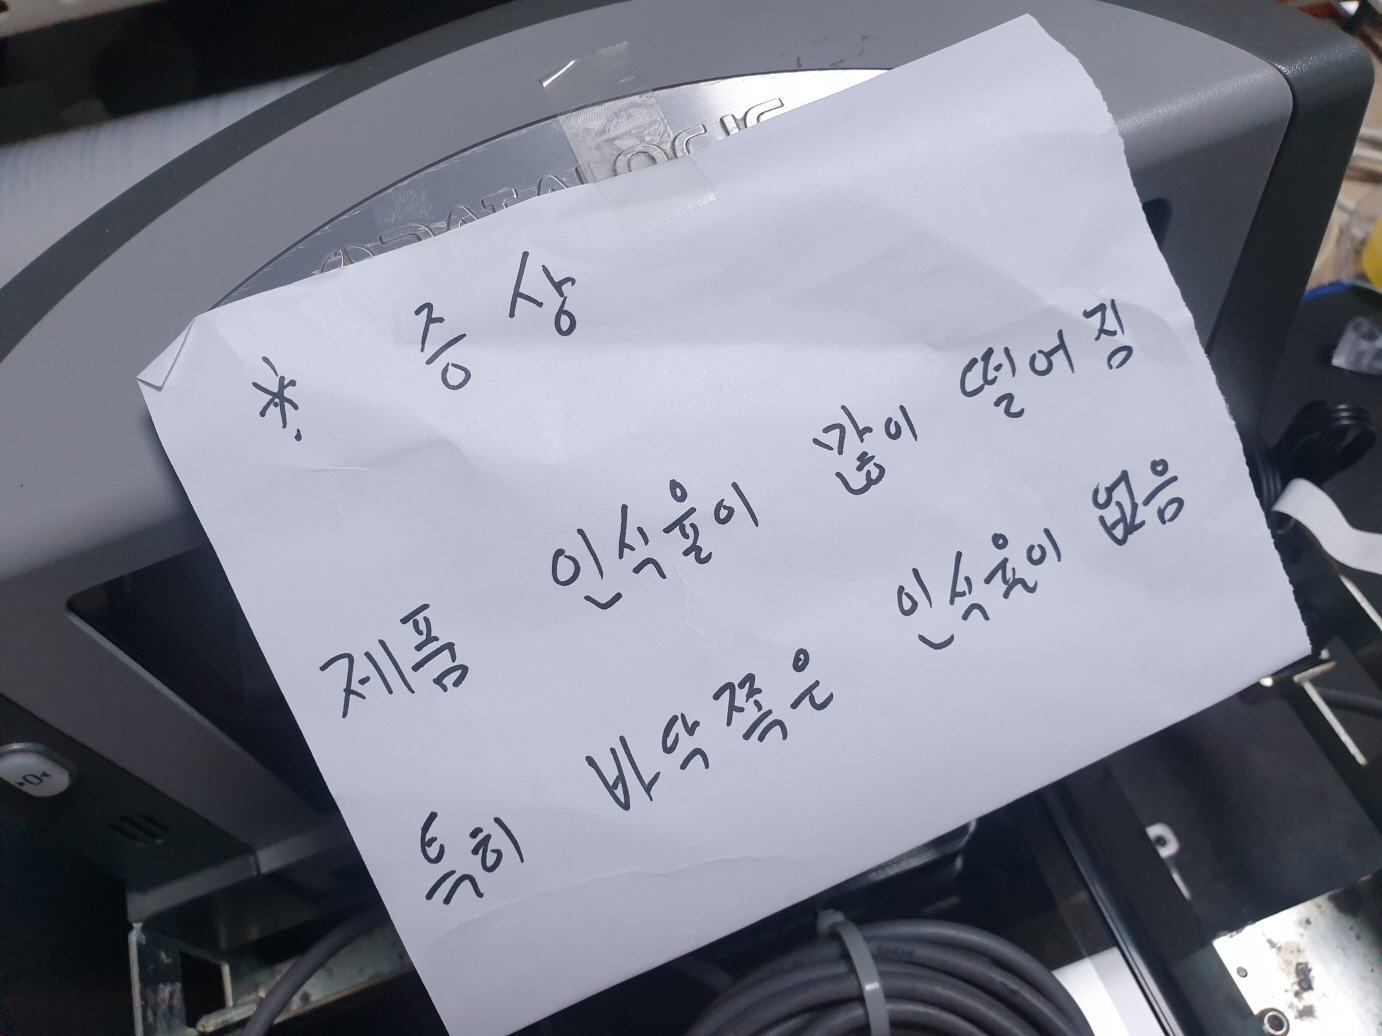 DATALOGIC
※ 증상
제품 인식율이 많이 떨어짐
특히 바닥쪽은 인식율이 없음
>0<